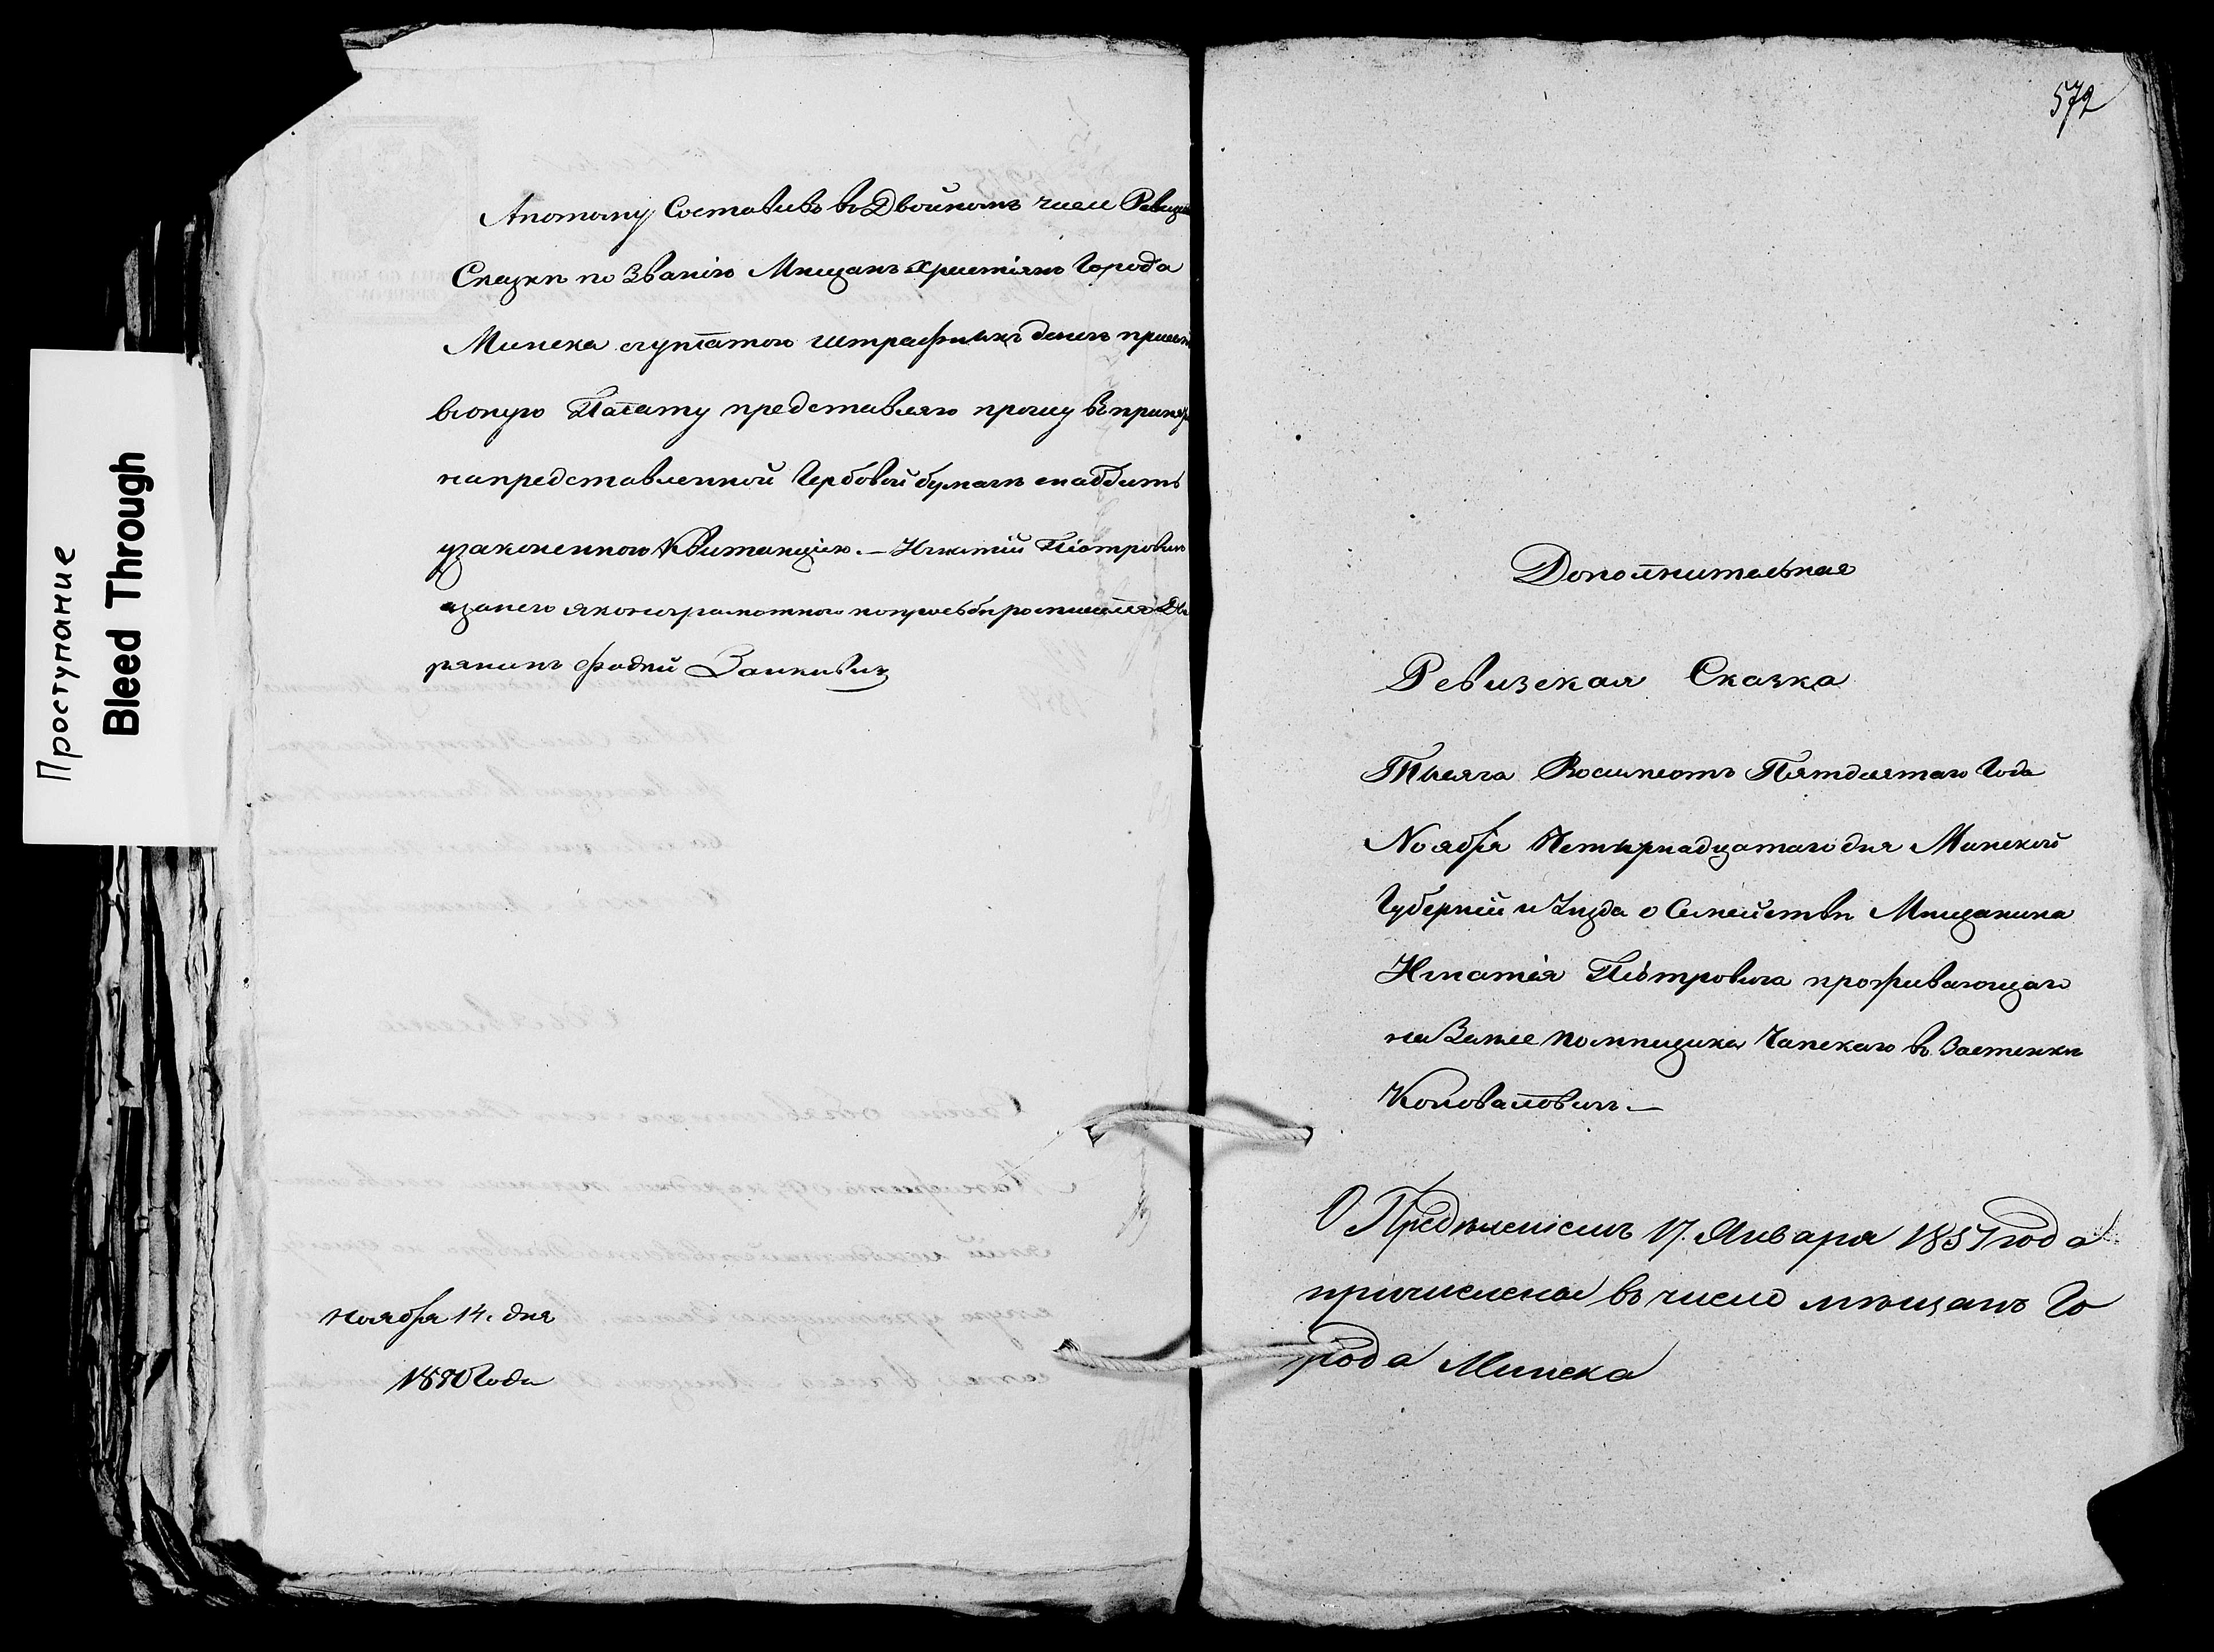 Проступание
Bleed Through
Апотому Составивъ во Двойномъ числѣ Ревизк
Сказки по Званію Мѣщанъ Християнъ Города
Минска суплатою штрафныхъ денегъ
Палату представляю прошу
напредставленной Гербовой бумагѣ снабдить
узаконенною Квитанціею. — Игнатій Піотровичъ
азанего яконеграмотного попрозьбѣ росписался Дво
рянинъ Фадѣй
Ноября 14. дня
1850 Года
572
Дополнительная
Ревизская Сказка
Тысяча Восимсотъ Пятдесятаго Года
Ноября Четырнадцатаго дня Минской
Губерніи и Уѣзда о Семействѣ Мѣщанина
Игнатія Піотровича проживающаго
на Земле помѣщика Чапскаго въ Застенкѣ
О Предѣленіемъ 17. Января 1851 года
причислена въ число мѣщанъ Го
рода Минска